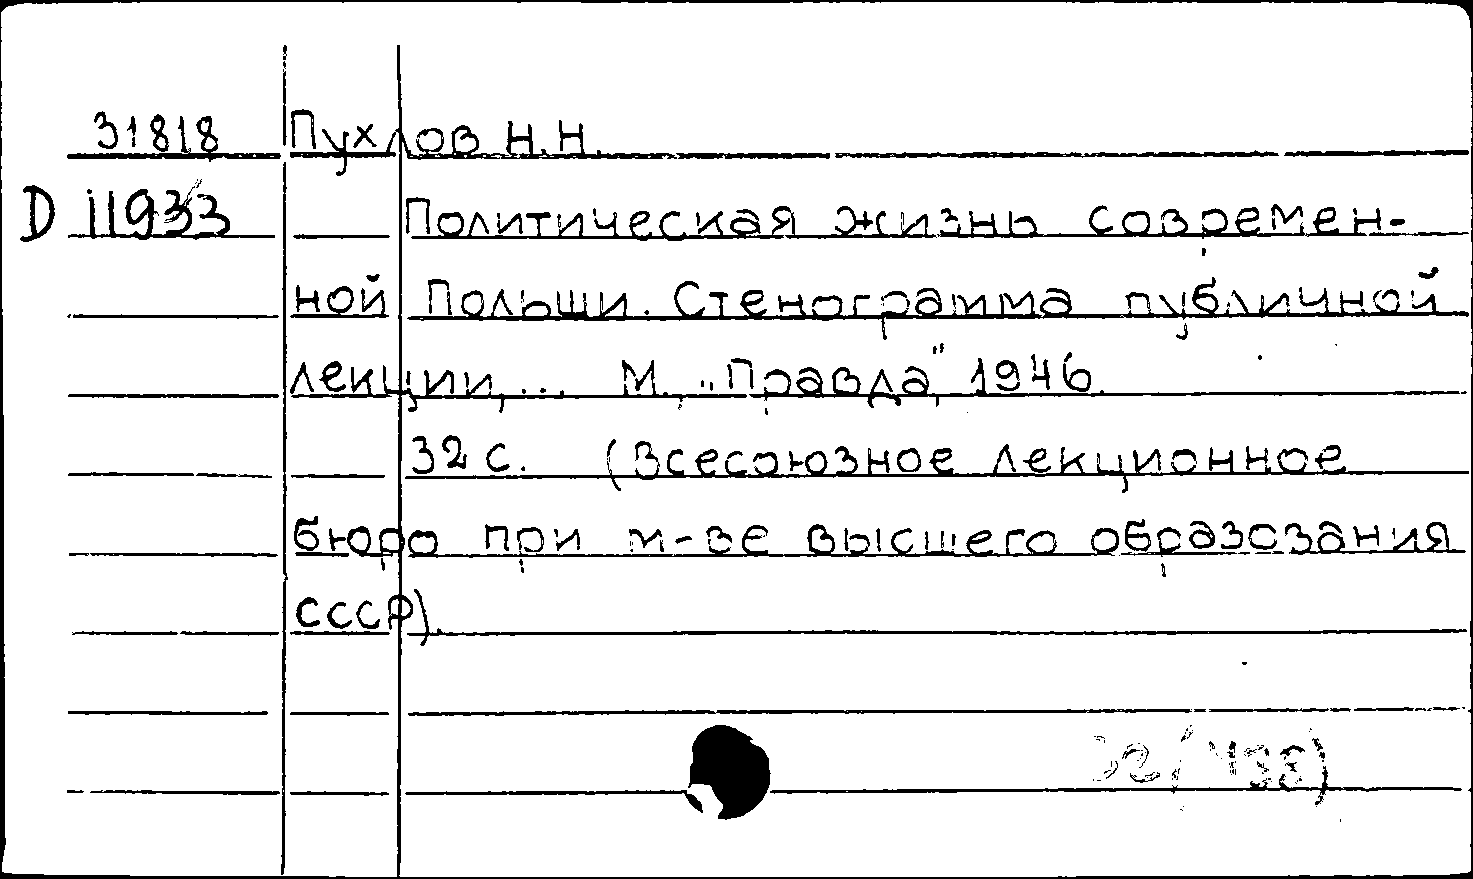 31818 Пухлов Н.Н.
D 11933 Политическая жизнь современ-
ной Польши. Стенограмма публичной
лекции,... М., „Правда", 1946.
32 с. (Всесоюзное лекционное
бюро при м-ве высшего образования
СССР).
32(438)